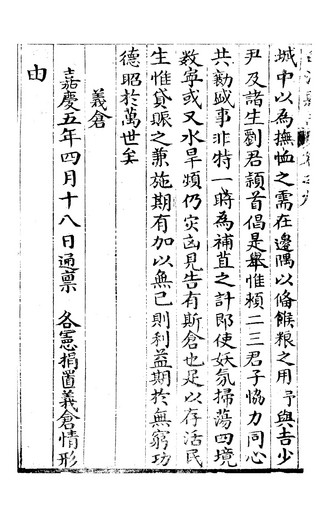 城中以為撫恤之需在邊隅以備餱粮之用予與吉少
尹及諸生劉君頴首倡是舉惟頼二三君子恊力同心
共勷盛事非特一時為補苴之計即使妖氛掃蕩四境
敉寧或又水旱頻仍灾凶見告有斯倉也足以存活民
生惟貸賑之兼施期有加以無已則利益期於無窮功
德昭於萬世矣
義倉
嘉慶五年四月十八日通禀 各憲捐置義倉情形
由